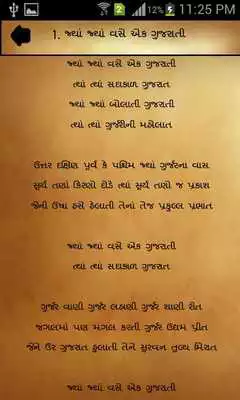 11:25 PM
1. જ્યાં જ્યાં વસે એક ગુજરાતી
જ્યાં જ્યાં વસે એક ગુજરાતી
ત્યાં ત્યાં સદાકાળ ગુજરાત
જ્યાં જ્યાં બોલાતી ગુજરાતી
ત્યાં ત્યાં ગુર્જરીની મહોલાત
ઉત્તર દક્ષિણ પૂર્વ કે પશ્ચિમ જ્યાં ગુર્જરના વાસ
સૂર્ય તણાં કિરણો દોડે ત્યાં સૂર્ય તણો જ પ્રકાશ
જેની ઉષા હસે હેલાતી તેનાં તેજ પ્રફુલ્લ પ્રભાત
જ્યાં જ્યાં વસે એક ગુજરાતી
ત્યાં ત્યાં સદાકાળ ગુજરાત
ગુર્જર વાણી ગુર્જર લહાણી ગુર્જર શાણી રીત
જગલમાં પણ મંગલ કરતી ગુર્જર ઉદ્યમ પ્રીત
જેને ઉર ગુજરાત હુલાતી તેને સુરવન તુલ્ય મિરાત
જ્યાં જ્યાં વસે એક ગુજરાતી